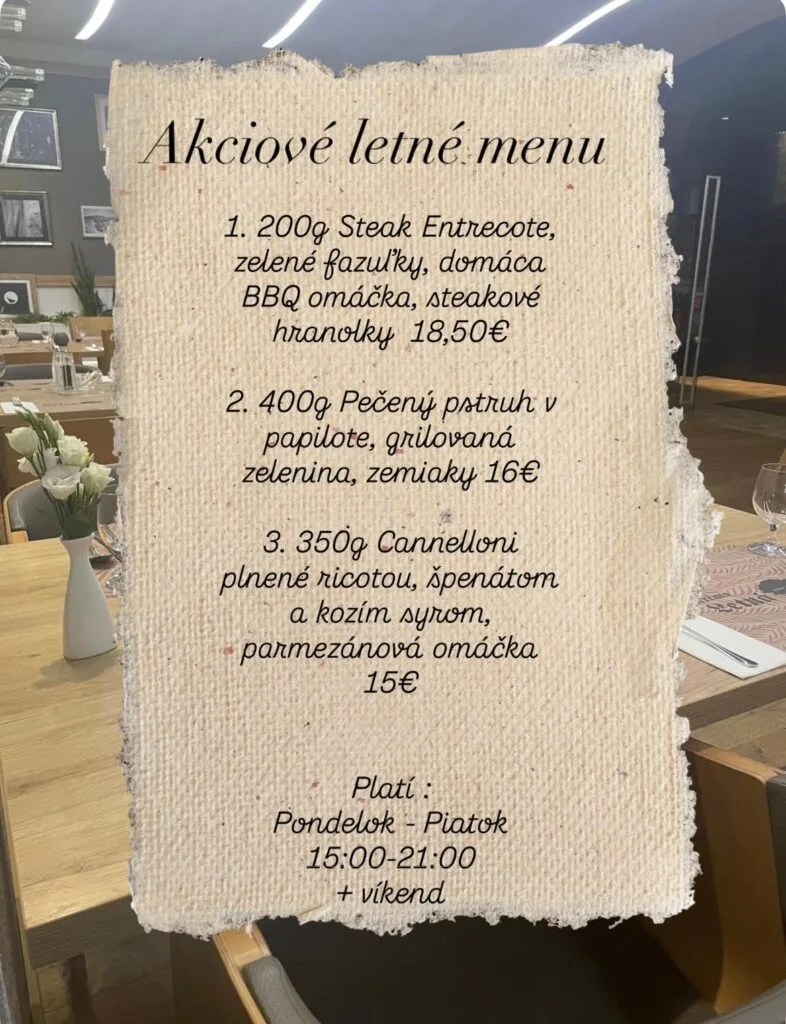 Akciové letné menu
1. 200g Steak Entrecote,
zelené fazuľky, domáca
BBQ omáčka, steakové
hranolky 18,50€
2. 400g Pečený pstruh v
papilote, grilovaná
zelenina, zemiaky 16€
3. 350g Cannelloni
plnené ricotou, špenátom
a kozím syrom,
parmezánová omáčka
15€
Platí :
Pondelok - Piatok
15:00-21:00
+ víkend